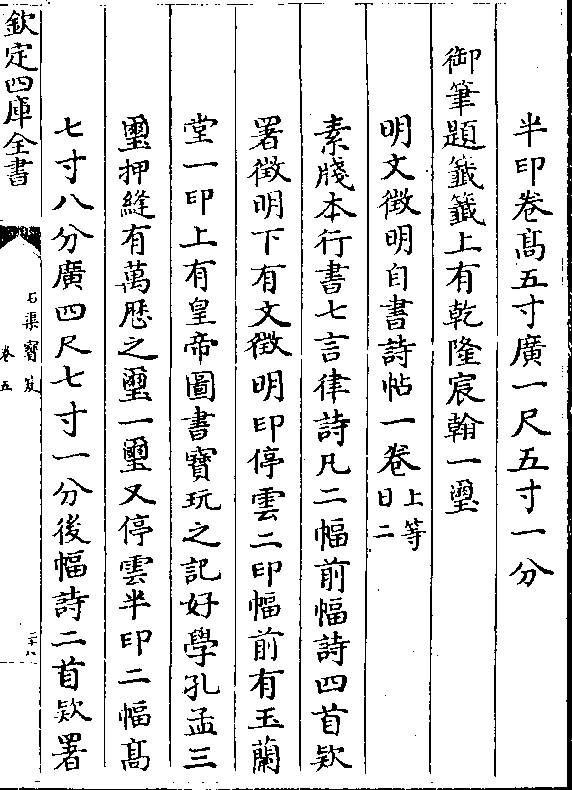 半印卷髙五寸廣一尺五寸一分
御筆題籖籖上有乾隆宸翰一璽
明文徵明自書詩帖一卷上等日二
素牋本行書七言律詩凡二幅前幅詩四首欵
署徵明下有文徵明印停雲二印幅前有玉蘭
堂一印上有皇帝圖書寳玩之記好學孔孟三
璽押縫有萬歴之璽一璽又停雲半印二幅髙
七寸八分廣四尺七寸一分後幅詩二首欵署
欽定四庫全書
石渠寳笈
卷五
二十八